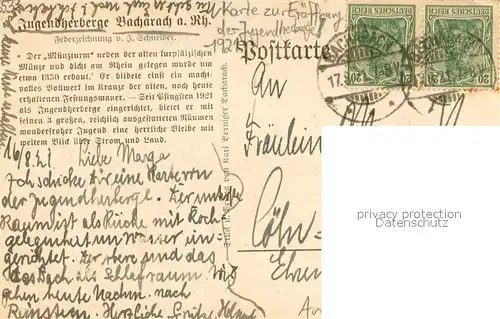 Jugendherberge Bacharach a. Rh.
Federzeichnung v. J. Schneider.
Der „Münzturm" neben der alten kurpfälzischen
Münze und dicht am Rhein gelegen wurde um
etwa 1350 erbaut. Er bildete einst ein macht-
volles Bollwerk im Kranze der alten, noch heute
erhaltenen Festungsmauer. Seit Pfingsten 1921
als Jugendherberge eingerichtet, bietet er mit
seinen 3 großen, reichlich ausgestatteten Räumen
wanderfroher Jugend eine herrliche Bleibe mit
weitem Blick über Strom und Land.
16/8.21 Liebe Marga
Ich schicke Dir eine Karte von
der Jugendherberge. Der unterste
Raum ist als Küche mit Koch-
gelegenheit u. Wasser ein-
gerichtet. Der obere und das
Dach als Schlafraum. Wir
gehen heute Nachm. nach
Rheinstein. Herzliche Grüße Helmut
Karte zur Eröffnung
der Jugendherberge
1921
Postkarte
DEUTSCHES REICH
DEUTSCHES REICH
BACHARACH
17.8
An
Fräulein
Cöln-
Ehren
privacy protection
AnsichtskartenVersand.com